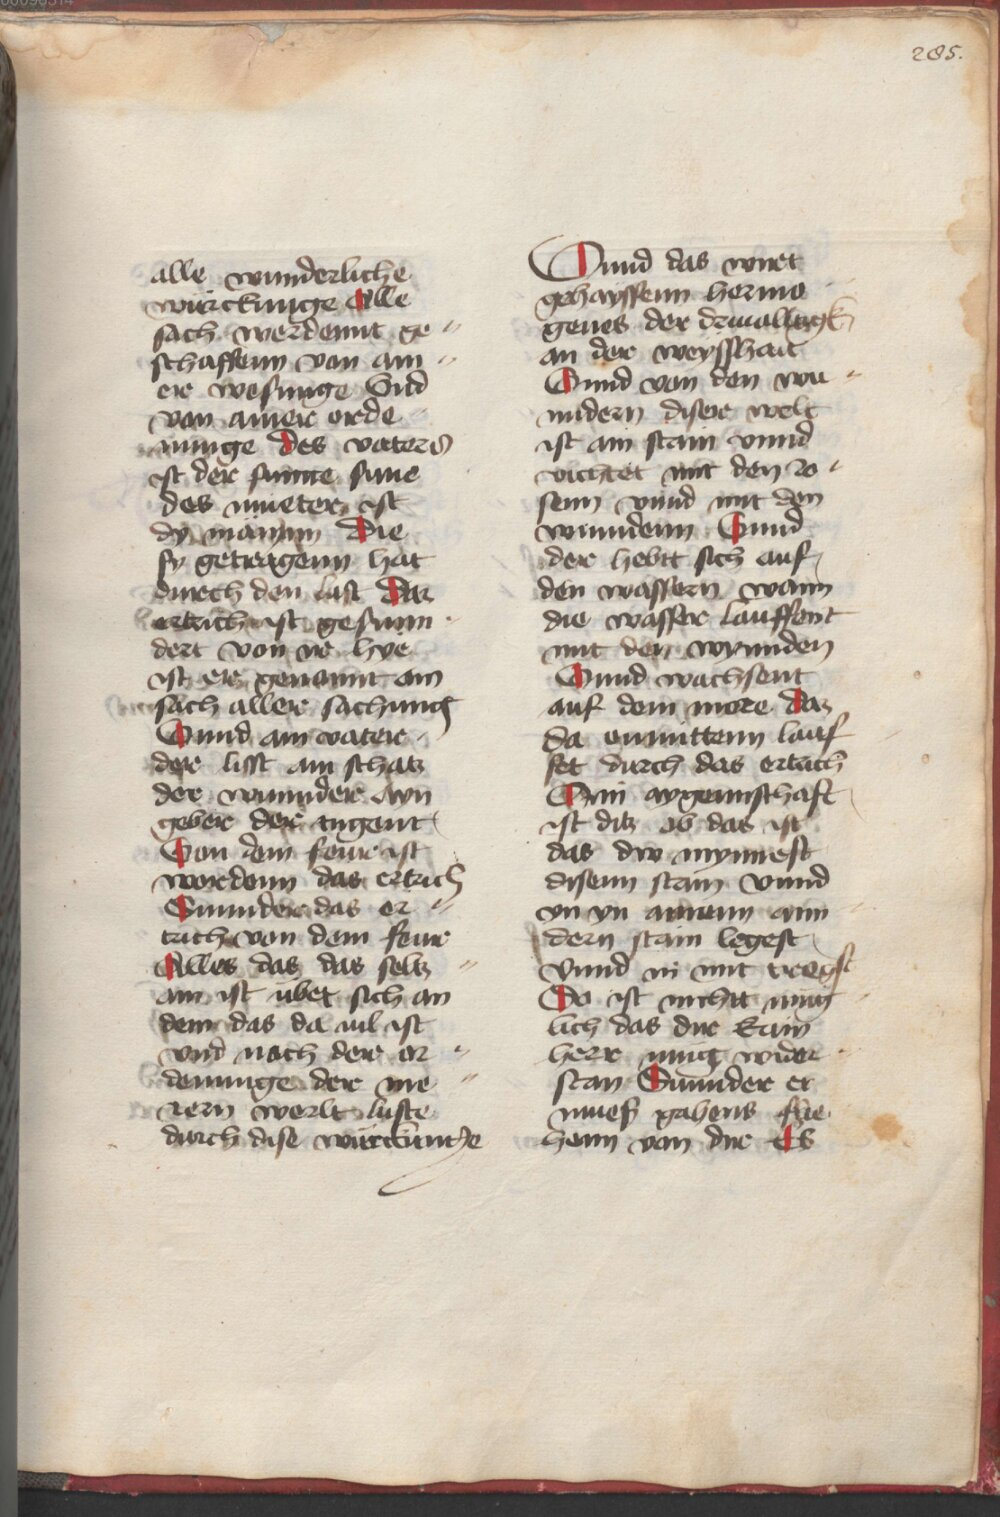 285.
alle wunderliche
würckunge Alle
sach werdennt ge
schaffenn von ain
er wesunge Vnd
von ainer orde
nunge des vaters
ist der sunne sune
des mueter ist
dy mänynn Die
sy getragenn hat
durch den luft Daz
ertrich ist gesunn
dert von ir hye
ist er genannt ain
sach aller sachung
Vnnd ain vater
der lisst ain schatz
der wunnder Ayn
geber der tugent
Von dem feur ist
wordenn das ertrich
Sunnder das er
trich von dem feur
Alles das das selb
ain ist übet sich an
dem das da uil ist
vnd nach der or
denunge der me
rern werlt luste
durch dise würckunge
Vnnd das wirt
gehayssenn hermo
genes der driualtigk
an der weysshait
Vnnd von den wu
nndern diser welt
ist ain stain vnnd
vichtet mit den ro
senn vnnd mit den
wunndenn Vnnd
der hebtt sich auf
den wassern wann
die wasser lauffent
mit den wynnden
Vnnd wachsent
auf dem more daz
da enmittenn lauf
fet durch das ertrich
Sein aygennschaft
ist ditz ob das ist
das dw nymmest
disenn stain vnnd
yn yn ainenn ann
dern stain legest
vnnd in mit tregst
So ist nichtt müg
lich das dir kain
herr müg wider
stan Sunnder er
muess gahens flie
henn von dir Es